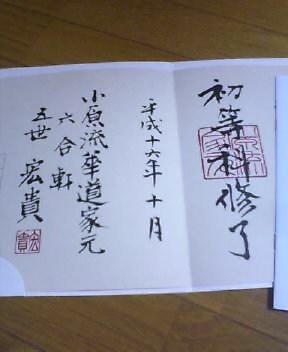 初等科修了
平成十六年十月
小原流華道家元
六合軒
五世 宏貴